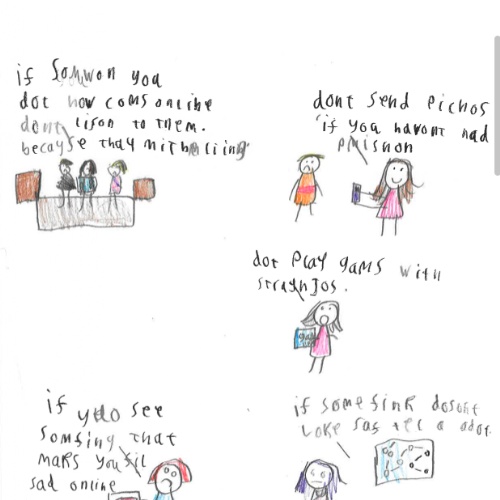 if Somwon you
dot now coms online
dont lison to them.
becayse thay mit be liing
dont send pichos
if you havont had
pmishon
dot play gams with
straynjos.
if you see
somfing that
maks you fil
sad online
if somefink dosont
loke sas tel a adot.